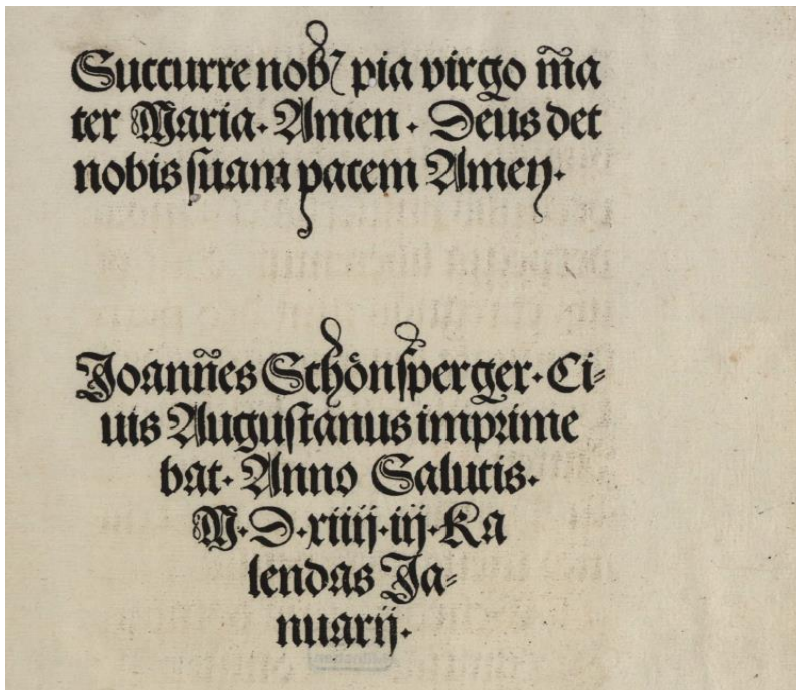 Succurre nobꝭ pia virgo m̃a
ter Maria· Amen · Deus det
nobis suam pacem Amen·
Joanñes Schönsperger· Ci⸗
uis Augustanus imprime
bat· Anno Salutis·
M·D·xiiij·iij·Ka
lendas Ja⸗
nuarij·